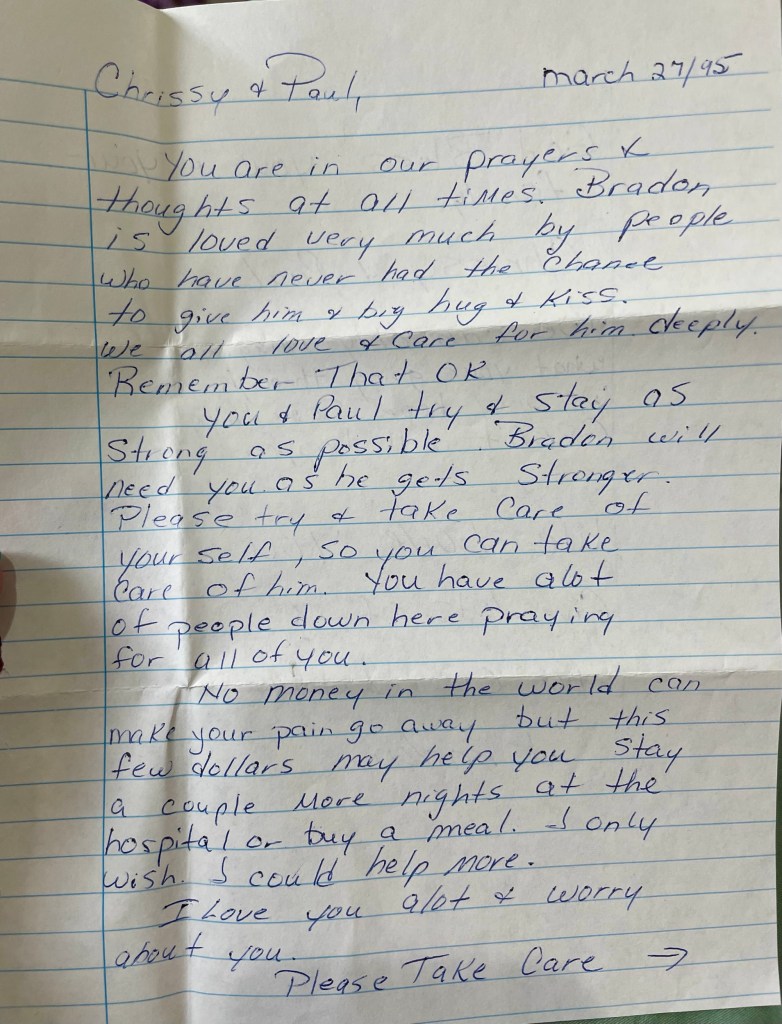 Chrissy & Paul,
march 27/95
You are in our prayers &
thoughts at all times. Bradon
is loved very much by people
who have never had the chance
to give him a big hug & kiss.
We all love & care for him deeply.
Remember That OK
you & Paul try & stay as
strong as possible. Bradon will
need you as he gets stronger.
Please try & take care of
your self, so you can take
care of him. You have alot
of people down here praying
for all of you.
No money in the world can
make your pain go away but this
few dollars may help you stay
a couple more nights at the
hospital or buy a meal. I only
wish I could help more.
I Love you alot & worry
about you.
Please Take Care →